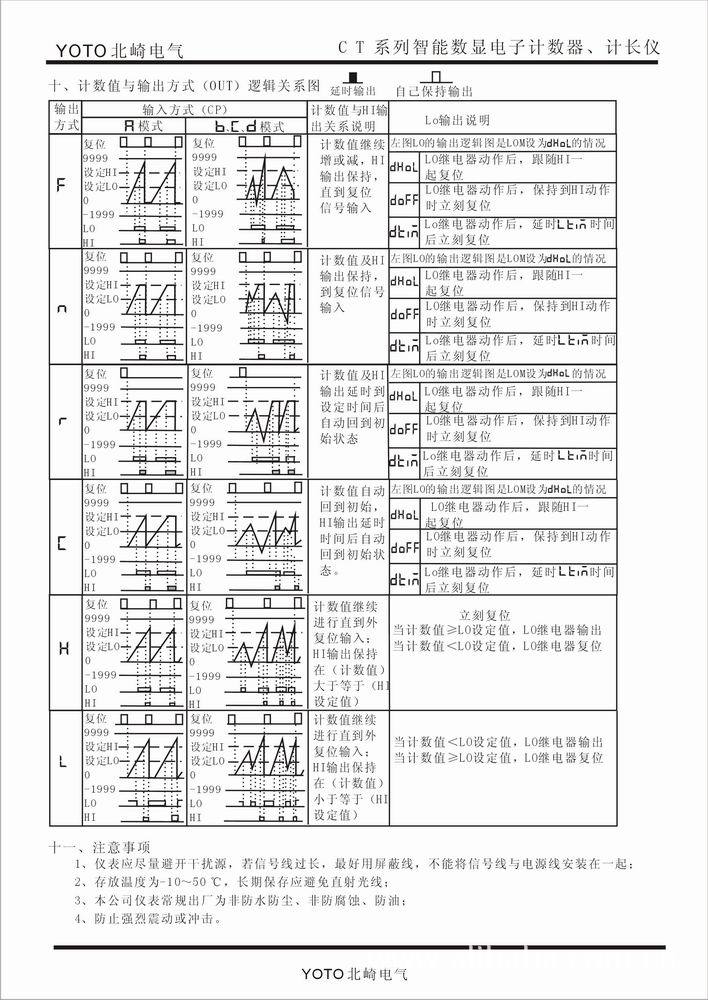 YOTO北崎电气
CT系列智能数显电子计数器、计长仪
十、计数值与输出方式（OUT）逻辑关系图
延时输出
自己保持输出
输出方式
输入方式（CP）
A 模式
b、C、d 模式
计数值与HI输出关系说明
Lo输出说明
F
复位
9999
设定HI
设定LO
0
-1999
LO
HI
复位
9999
设定HI
设定LO
0
-1999
LO
HI
计数值继续
增或减，HI
输出保持，
直到复位
信号输入
左图LO的输出逻辑图是LOM设为dHoL的情况
dHoL
LO继电器动作后，跟随HI一
起复位
doFF
LO继电器动作后，保持到HI动作
时立刻复位
dtin
Lo继电器动作后，延时Ltin时间
后立刻复位
n
复位
9999
设定HI
设定LO
0
-1999
LO
HI
复位
9999
设定HI
设定LO
0
-1999
LO
HI
计数值及HI
输出保持，
到复位信号
输入
左图LO的输出逻辑图是LOM设为dHoL的情况
dHoL
LO继电器动作后，跟随HI一
起复位
doFF
LO继电器动作后，保持到HI动作
时立刻复位
dtin
Lo继电器动作后，延时Ltin时间
后立刻复位
r
复位
9999
设定HI
设定LO
0
-1999
LO
HI
复位
9999
设定HI
设定LO
0
-1999
LO
HI
计数值及HI
输出延时到
设定时间后
自动回到初
始状态
左图LO的输出逻辑图是LOM设为dHoL的情况
dHoL
LO继电器动作后，跟随HI一
起复位
doFF
LO继电器动作后，保持到HI动作
时立刻复位
dtin
Lo继电器动作后，延时Ltin时间
后立刻复位
C
复位
9999
设定HI
设定LO
0
-1999
LO
HI
复位
9999
设定HI
设定LO
0
-1999
LO
HI
计数值自动
回到初始，
HI输出延时
时间后自动
回到初始状
态。
左图LO的输出逻辑图是LOM设为dHoL的情况
dHoL
LO继电器动作后，跟随HI一
起复位
doFF
LO继电器动作后，保持到HI动作
时立刻复位
dtin
Lo继电器动作后，延时Ltin时间
后立刻复位
H
复位
9999
设定HI
设定LO
0
-1999
LO
HI
复位
9999
设定HI
设定LO
0
-1999
LO
HI
计数值继续
进行直到外
复位输入；
HI输出保持
在（计数值）
大于等于（HI
设定值）
立刻复位
当计数值≥LO设定值，LO继电器输出
当计数值<LO设定值，LO继电器复位
L
复位
9999
设定HI
设定LO
0
-1999
LO
HI
复位
9999
设定HI
设定LO
0
-1999
LO
HI
计数值继续
进行直到外
复位输入；
HI输出保持
在（计数值）
小于等于（HI
设定值）
当计数值<LO设定值，LO继电器输出
当计数值≥LO设定值，LO继电器复位
十一、注意事项
1、仪表应尽量避开干扰源，若信号线过长，最好用屏蔽线，不能将信号线与电源线安装在一起；
2、存放温度为-10～50 ℃，长期保存应避免直射光线；
3、本公司仪表常规出厂为非防水防尘、非防腐蚀、防油；
4、防止强烈震动或冲击。
YOTO北崎电气